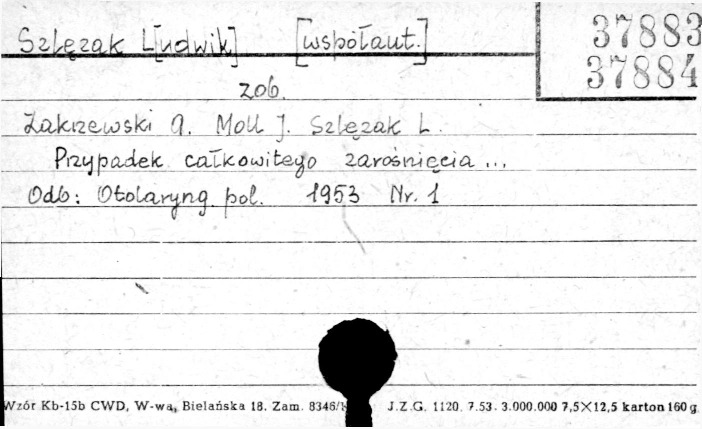 Szlęzak L[udwik] [współaut.]
37883
37884
zob.
Zakrzewski A. Moll J. Szlęzak L.
Przypadek całkowitego zarośnięcia ...
Odb: Otolaryng. pol. 1953 Nr. 1
Wzór Kb-15b CWD, W-wa, Bielańska 18. Zam. 8346/ J.Z.G. 1120. 7.53. 3.000.000 7,5×12,5 karton 160 g